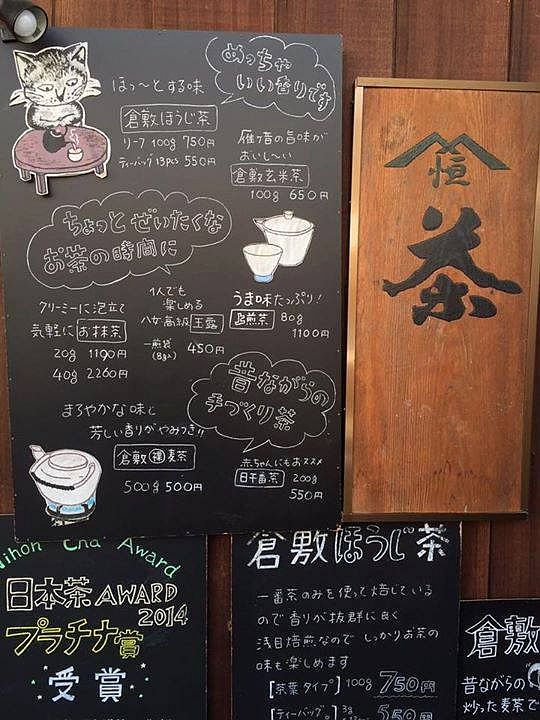 めっちゃ
いい香りです
ほっ〜とする味
倉敷ほうじ茶
リーフ 100g 750円
ティーバッグ 13pcs 550円
雁ヶ音の旨味が
おいし〜い
倉敷玄米茶
100g 650円
ちょっと ぜいたくな
お茶の時間に
クリーミーに泡立て
気軽に お抹茶
20g 1190円
40g 2260円
1人でも
楽しめる
八女高級 玉露
一煎袋
(8g入) 450円
うま味たっぷり!
上煎茶 80g
1100円
昔ながらの
手づくり茶
まろやかな味と
芳しい香りがやみつき!!
倉敷 裸麦茶
500g 500円
赤ちゃんにもおススメ
日干番茶 200g
550円
恒
茶
Nihon Cha Award
日本茶AWARD
2014
プラチナ賞
受賞
倉敷ほうじ茶
一番茶のみを使って焙じている
ので香りが抜群に良く
浅目焙煎なので しっかりお茶の
味も楽しめます
[茶葉タイプ] 100g 750円
[ティーバッグ] 3g 550円
倉敷
昔ながらの
炒った麦茶で